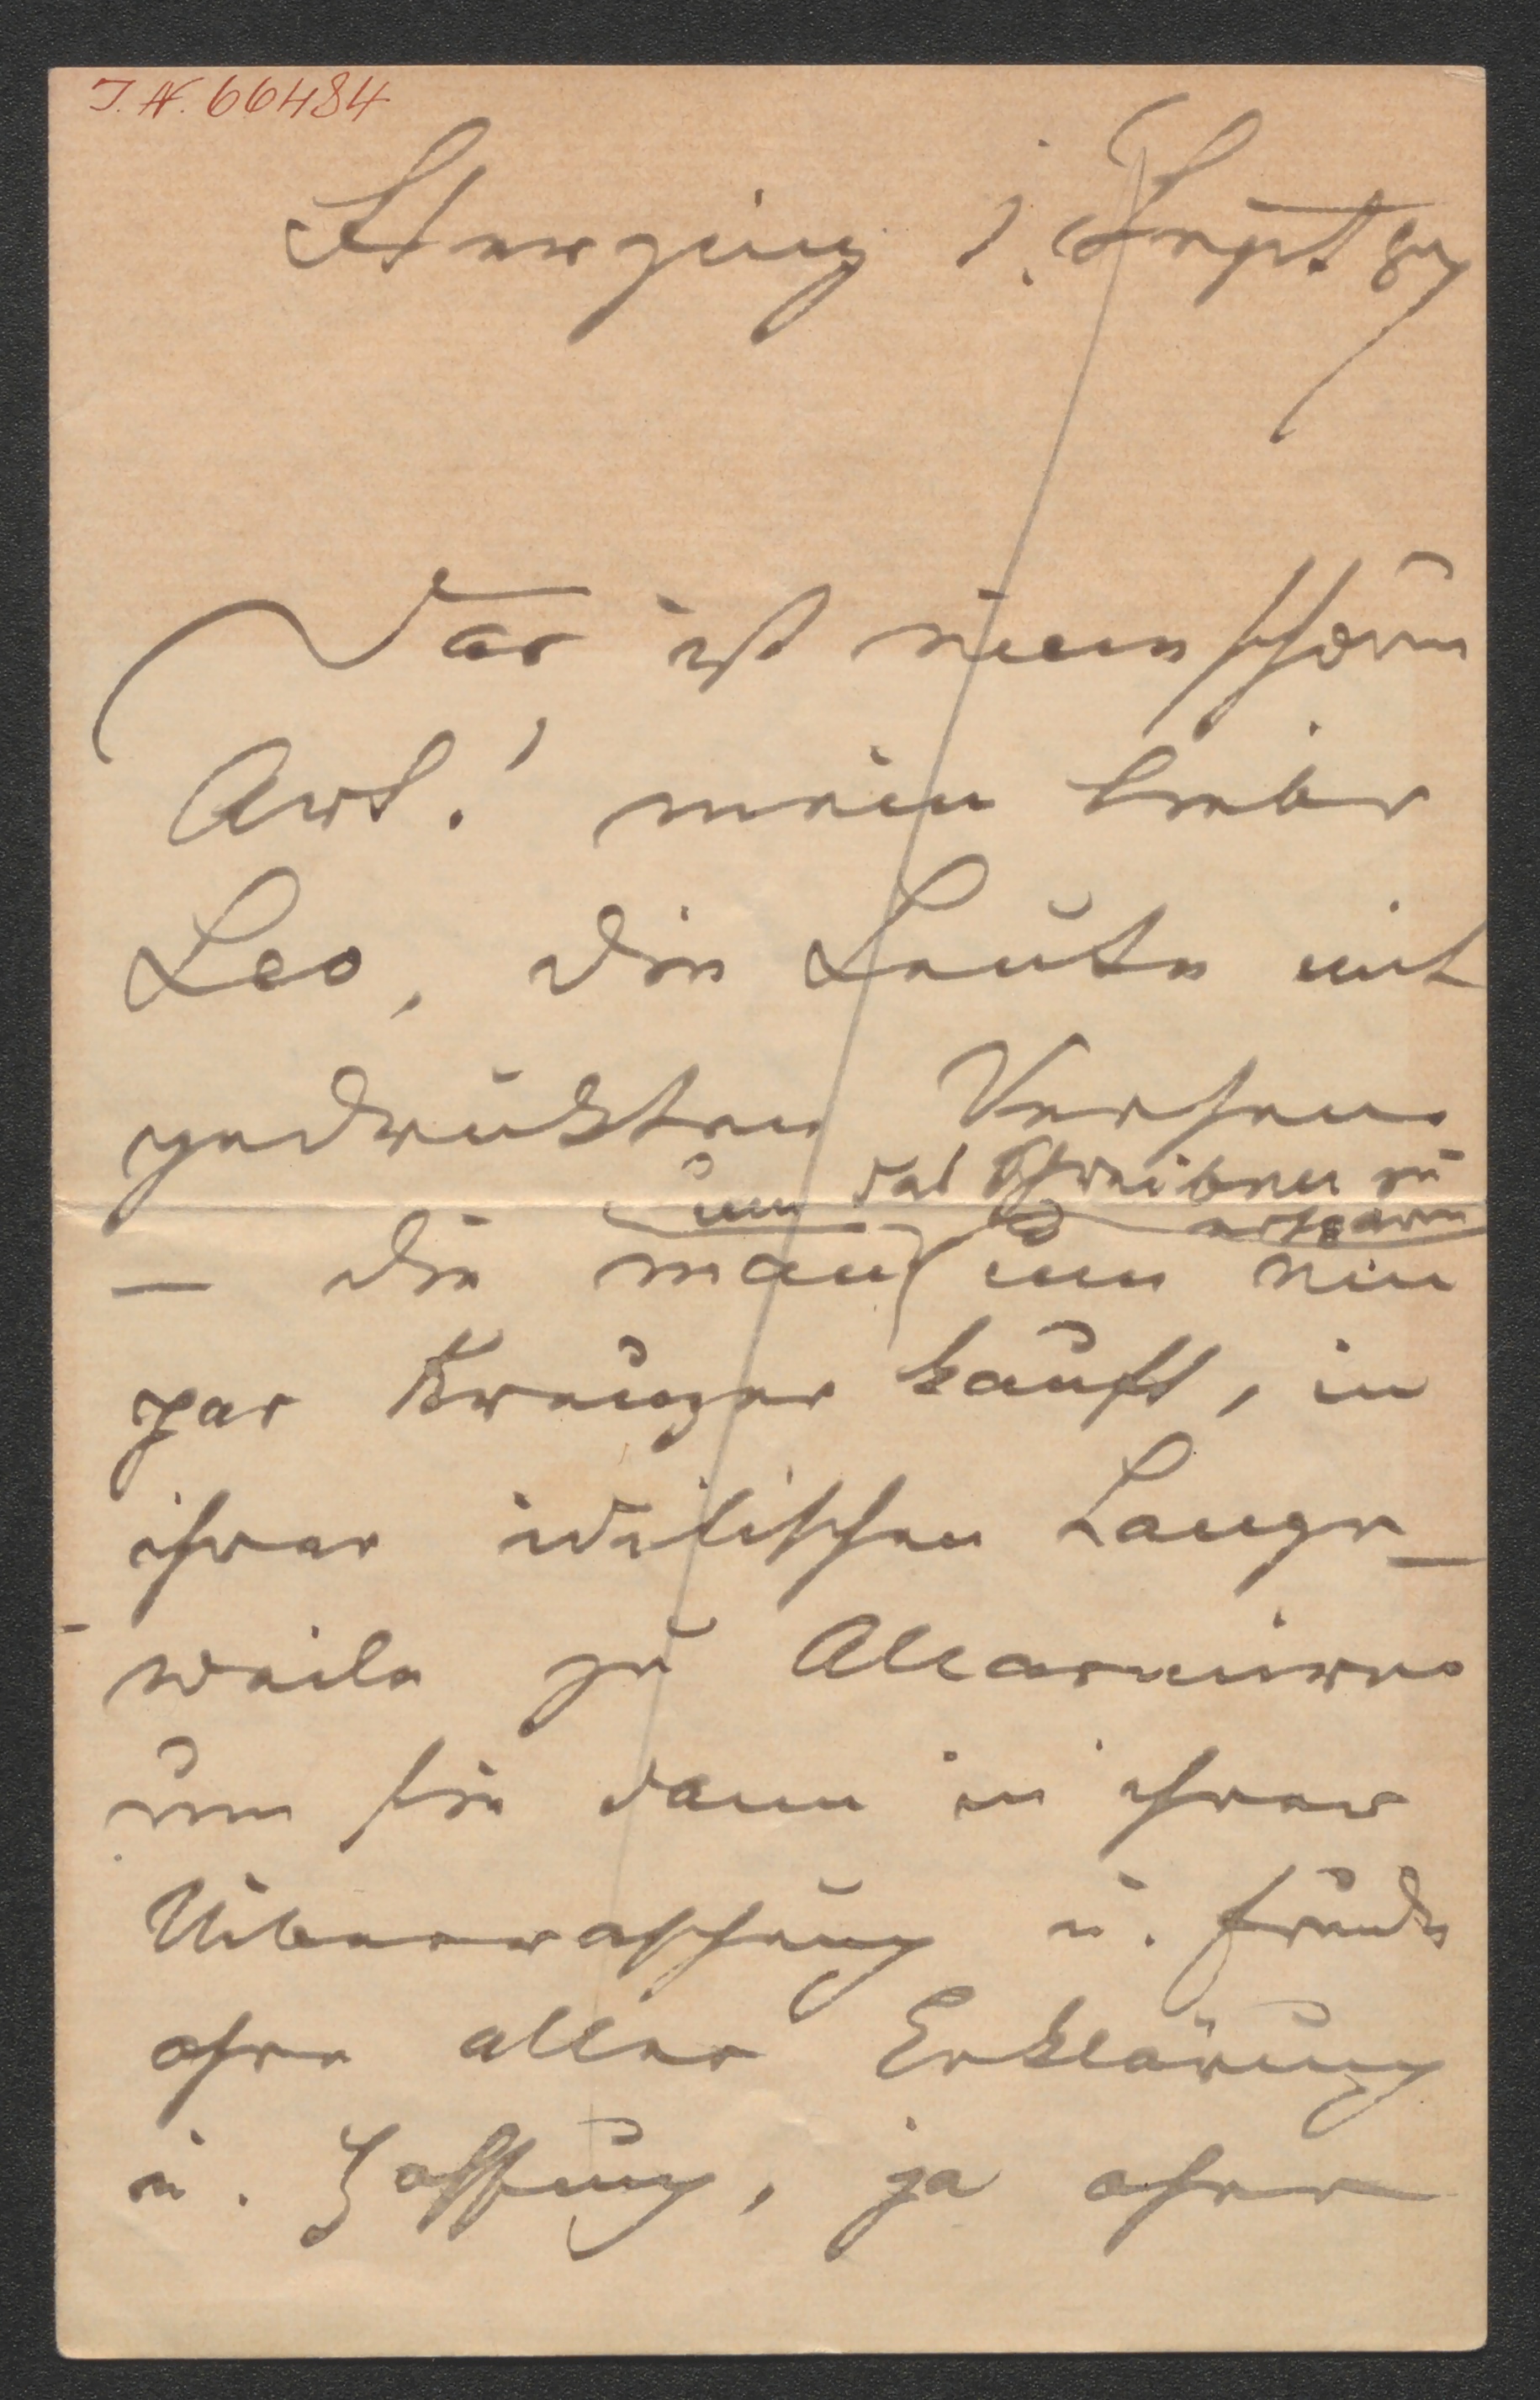 I. N. 66484
Sterzing 1. Sept 87
Das ist eine schöne
Art! mein lieber
Leo, die Leute mit
gedrukten Versen
um das Schreiben zu
ersparen
– die man um ein
par Kreuzer kauft, in
ihrer idilischen Lange-
weile zu Allarmiren
um sie dann in ihrer
Uiberraschung u. Freude
ohne aller Erklärung
u. Hoffnung, ja ohne